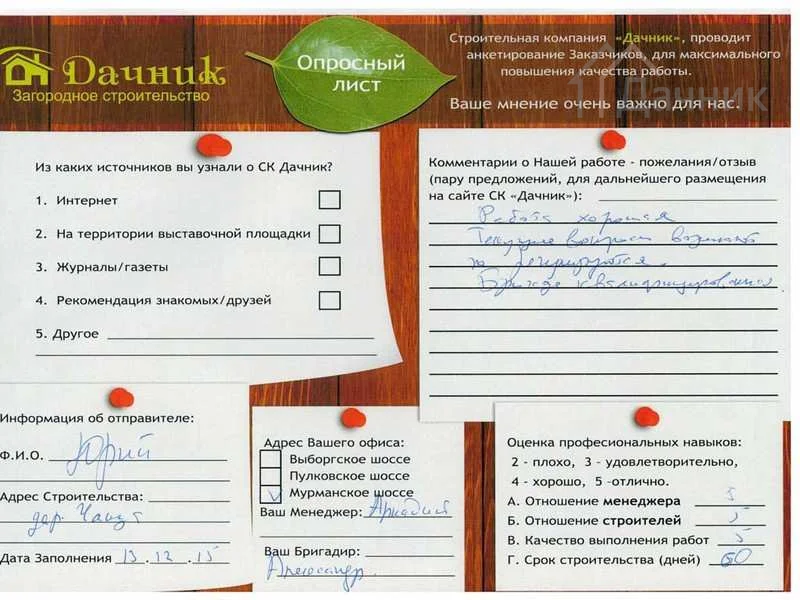 Дачник
Загородное строительство
Опросный
лист
Строительная компания «Дачник», проводит
анкетирование Заказчиков, для максимального
повышения качества работы.
Ваше мнение очень важно для нас.
Дачник
Из каких источников вы узнали о СК Дачник?
1. Интернет
2. На территории выставочной площадки
3. Журналы/газеты
4. Рекомендация знакомых/друзей
5. Другое
Комментарии о Нашей работе - пожелания/отзыв
(пару предложений, для дальнейшего размещения
на сайте СК «Дачник»):
Работа хорошая
Текущие вопросы
Бригада квалифицированная
Информация об отправителе:
Ф.И.О. Юрий
Адрес Строительства:
дер.
Дата Заполнения 13.12.15
Адрес Вашего офиса:
Выборгское шоссе
Пулковское шоссе
Мурманское шоссе
Ваш Менеджер: Аркадий
Ваш Бригадир:
Александр
Оценка профессиональных навыков:
2 - плохо, 3 - удовлетворительно,
4 - хорошо, 5 -отлично.
А. Отношение менеджера 5
Б. Отношение строителей 5
В. Качество выполнения работ 5
Г. Срок строительства (дней) 60